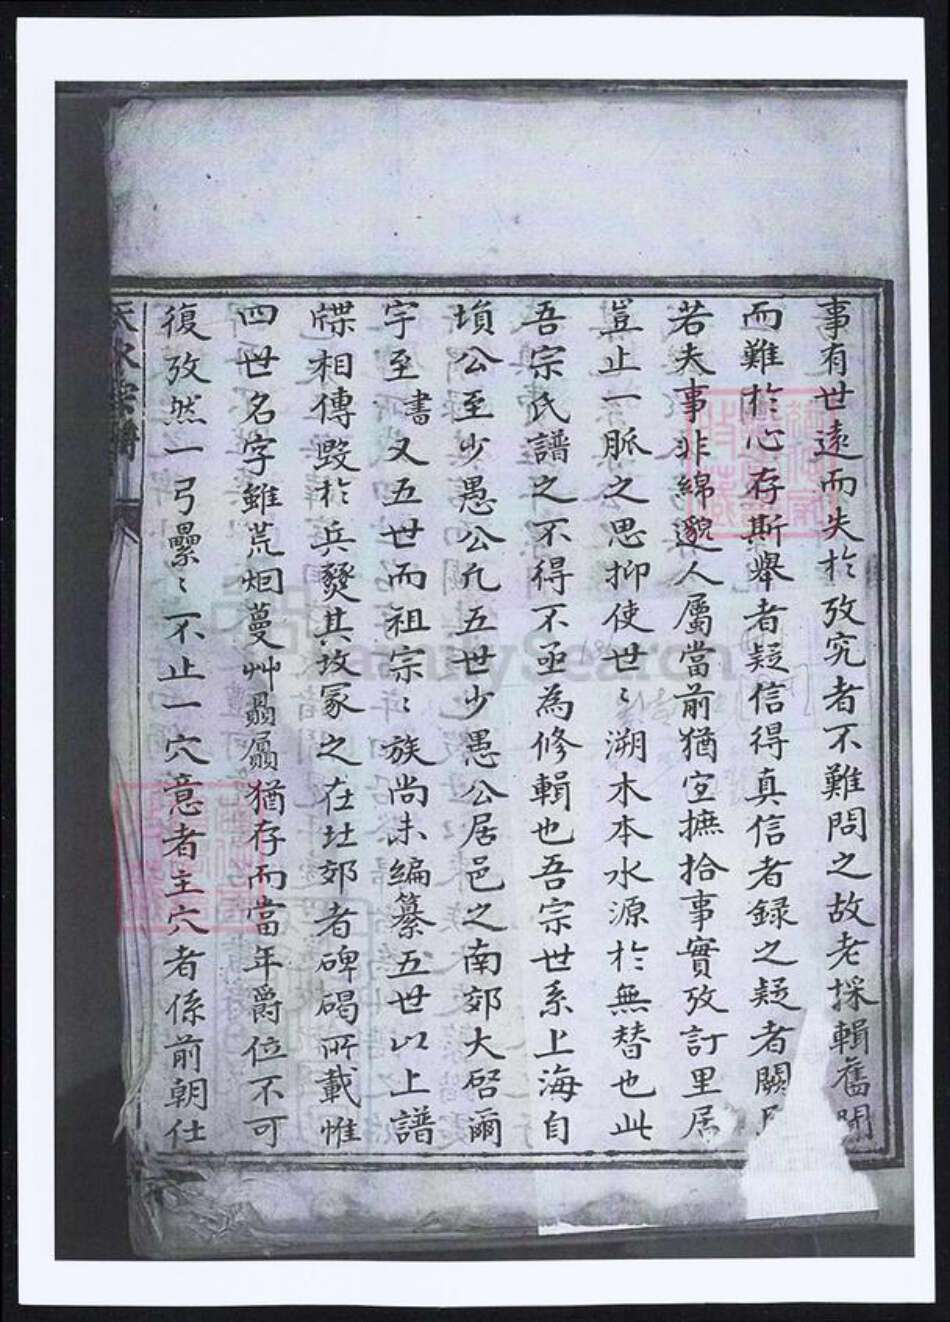 事有世遠而失於攷究者不難問之故老採輯舊聞
而難於心存斯舉者疑信得真信者錄之疑者闕
若夫事非綿邈人屬當前猶宜摭拾事實攷訂里居
豈止一脈之思抑使世〻溯木本水源於無替也此
吾宗氏譜之不得不亟為修輯也吾宗世系上海自
塤公至少愚公凢五世少愚公居邑之南郊大啓爾
宇至書又五世而祖宗〻族尚未編纂五世以上譜
牒相傳毀於兵燹其坟冢之在北郊者碑碣所載惟
四世名字雖荒烟蔓艸贔屭猶存而當年爵位不可
復攷然一弓纍〻不止一穴意者主穴者係前朝仕
天水宗譜
FamilySearch